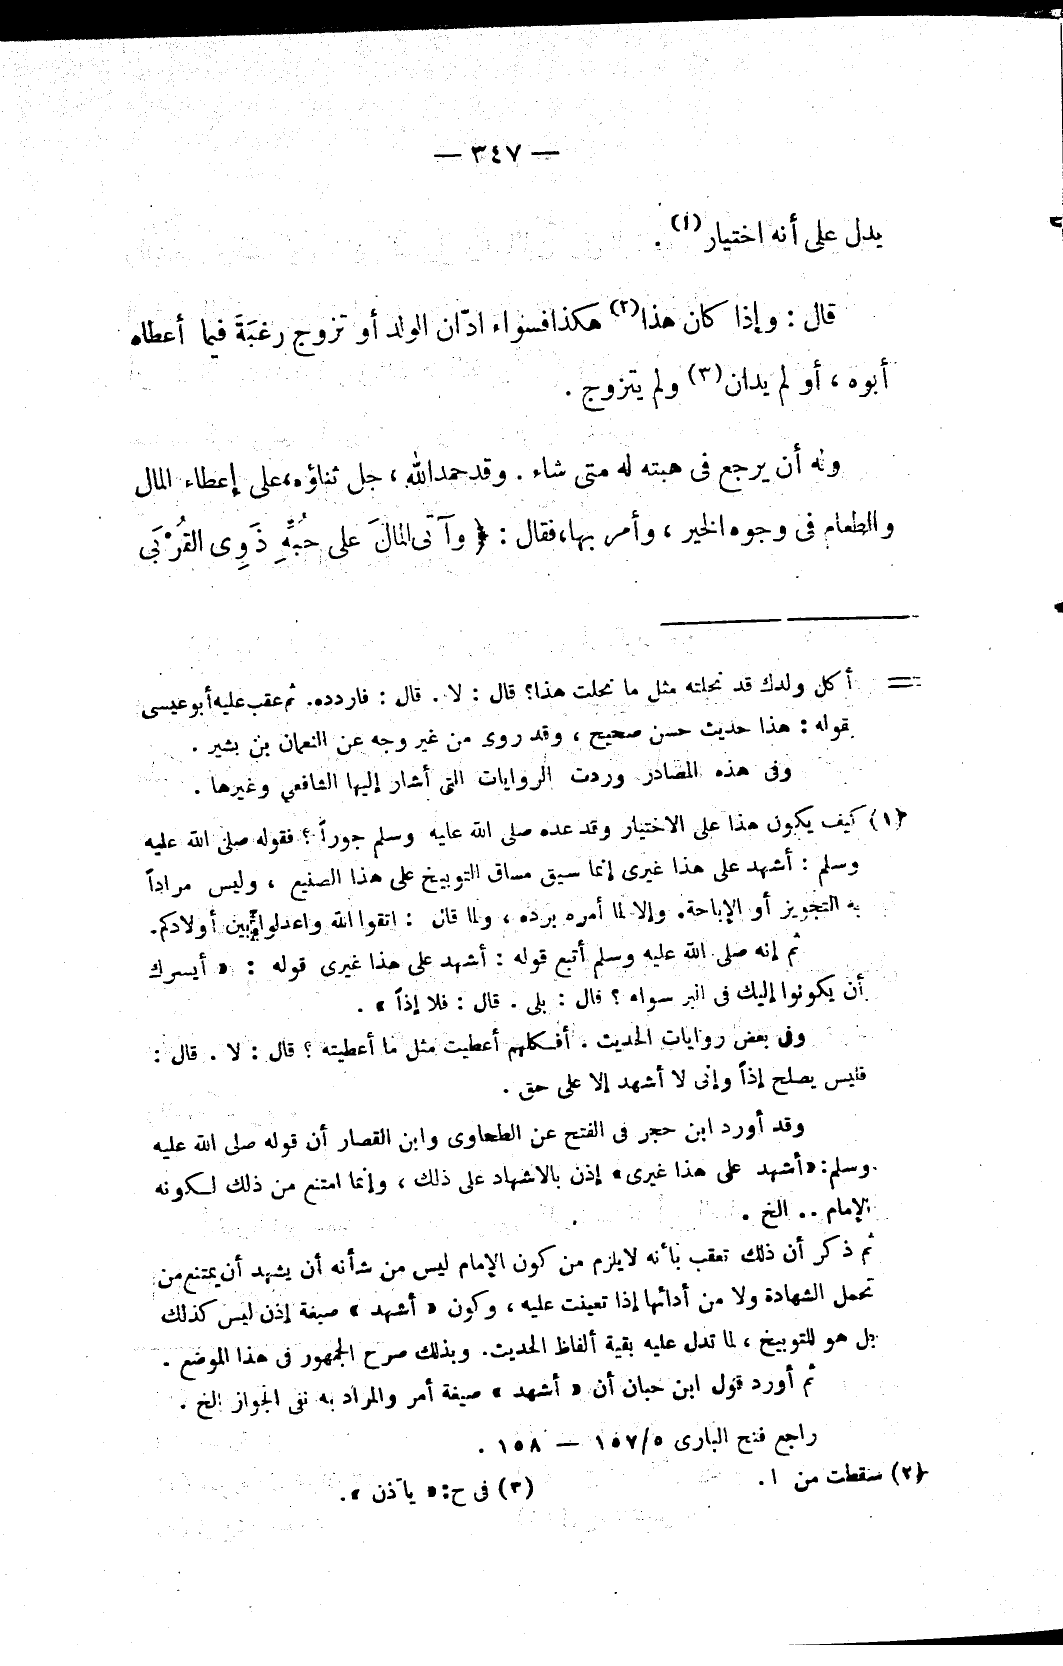 — ٣٤٧ —
يدل على أنه اختيار (١) .
قال : وإذا كان هذا (٢) هكذا فسواء ادّان الولد أو تزوج رغبَةَ فيما أعطاه
أبوه ، أو لم يدان (٣) ولم يتزوج .
وله أن يرجع فى هبته له متى شاء . وقد حمد الله ، جل ثناؤه، على إعطاء المال
والطعام فى وجوه الخير ، وأمر بها، فقال : ﴿ وآتى المالَ على حُبِّهِ ذَوِى القُرْبَى
= أكل ولدك قد نحلته مثل ما نحلت هذا؟ قال : لا . قال : فاردده. ثم عقب عليه أبو عيسى
بقوله : هذا حديث حسن صحيح ، وقد روى من غير وجه عن النعمان بن بشير .
وفى هذه المصادر وردت الروايات التى أشار إليها الشافعي وغيرها .
(١) كيف يكون هذا على الاختيار وقد عده صلى الله عليه وسلم جوراً ؟ فقوله صلى الله عليه
وسلم : أشهد على هذا غيرى إنما سيق مساق التوبيخ على هذا الصنيع ، وليس مراداً
به التجويز أو الإباحة. وإلا لما أمره برده ، ولما قال : اتقوا الله واعدلوا بين أولادكم.
ثم إنه صلى الله عليه وسلم أتبع قوله : أشهد على هذا غيرى قوله : « أيسرك
أن يكونوا إليك فى البر سواء ؟ قال : بلى . قال : فلا إذاً » .
وفى بعض روايات الحديث . أفكلهم أعطيت مثل ما أعطيته ؟ قال : لا . قال :
فليس يصلح إذاً وإنى لا أشهد إلا على حق .
وقد أورد ابن حجر فى الفتح عن الطحاوى وابن القصار أن قوله صلى الله عليه
وسلم: «أشهد على هذا غيرى» إذن بالاشهاد على ذلك ، وإنما امتنع من ذلك لكونه
الإمام .. الخ .
ثم ذكر أن ذلك تعقب بأنه لا يلزم من كون الإمام ليس من شأنه أن يشهد أن يمتنع من
تحمل الشهادة ولا من أدائها إذا تعينت عليه ، وكون « أشهد » صيغة إذن ليس كذلك
بل هو للتوبيخ ، لما تدل عليه بقية ألفاظ الحديث. وبذلك صرح الجمهور فى هذا الموضع .
ثم أورد قول ابن حبان أن « أشهد » صيغة أمر والمراد به نفى الجواز الخ .
راجع فتح البارى ٥/١٥٧ — ١٥٨ .
(٢) سقطت من ا . (٣) فى ح: « يأذن ».